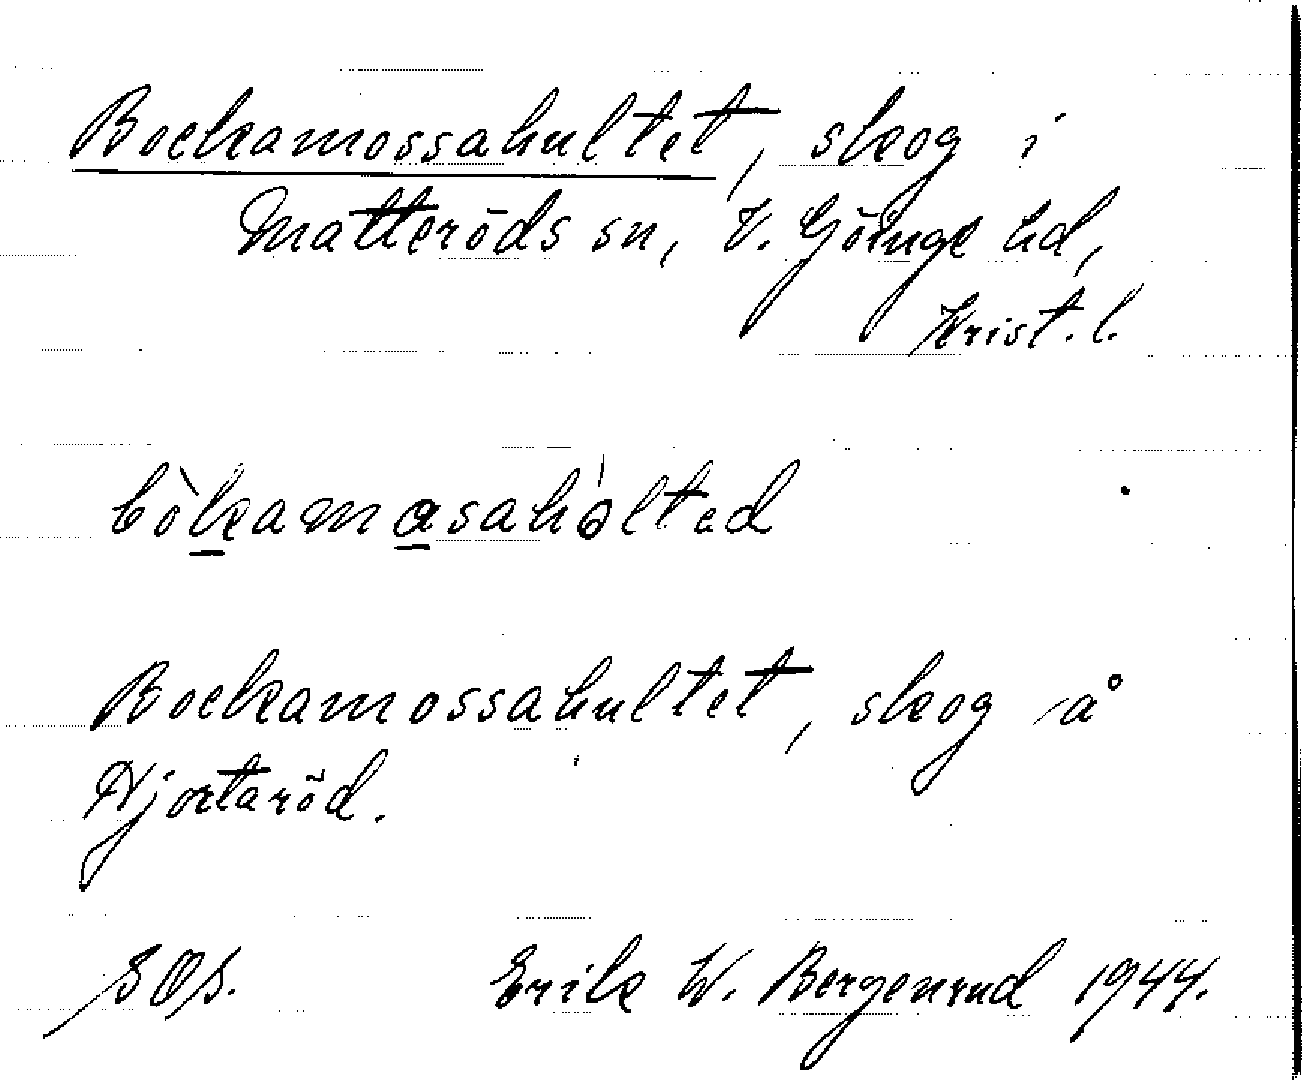 Bockamossahultet, skog i
Matteröds sn, V. Göinge hd,
Krist. l.
bòkamasahòlted
Bockamossahultet, skog å
Hjortaröd.
SOS. Erik W. Bergenrud 1944.